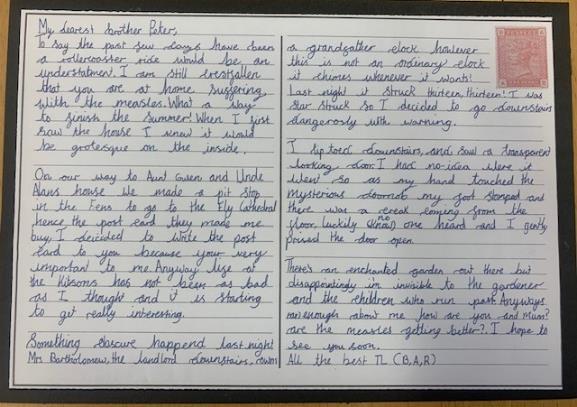 My dearest brother Peter,
To say the past few days have been
a rollercoaster ride would be an
understatment. I am still crestfallen
that you are at home suffering,
with the measles. What a way
to finish the summer! When I first
saw the house I knew it would
be grotesque on the inside.
On our way to Aunt Gwen and Uncle
Alans house we made a pit stop
in the Fens to go to the Ely Cathedral
hence the post card they made me
buy, I decided to write the post
card to you because your very
important to me. Anyway life at
the Kitsons has not been as bad
as I thought and it is starting
to get really interesting.
Something obscure happend last night
Mrs Bartholomew, the landlord downstairs, owns
a grandfather clock however
this is not an ordinary clock
it chimes whenever it wants!
Last night it struck thirteen, thirteen! I was
star struck so I decided to go downstairs
dangerosly with warning.
I tip toed downstairs, and saw a transparent
looking door. I had no-idea were it
went so as my hand touched the
mysterious my foot stomped and
there was a creak coming from the
floor, luckily no one heard and I gently
pressed the door open.
There's an enchanted garden out there but
disappointingly im invisible to the gardener
and the children who run past. Anyways
enough about me how are you and mum?
are the measles getting better?. I hope to
see you soon.
All the best TL (B,A,R)